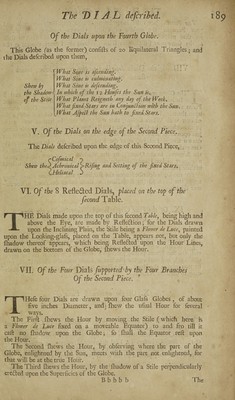 The DIAL described. 189
Of the Dials upon the Fourth Globe.
This Globe (as the former) consists of 20 Equilateral Triangles; and
the Dials described upon them,
What Sign is ascending.
What Sine is culminating.
Shew by What Sine is descending.
the Shadow In which of the 12 Houses the Sun is.
of the Stile What Planet Reigneth any day of the Week.
What fixed Stars are in Conjunction with the Sun.
What Aspect the Sun hath to fixed Stars.
V. Of the Dials on the edge of the Second Piece.
The Dials described upon the edge of this Second Piece,
Cosmical
Shew the Achronical Rising and Setting of the fixed Stars.
Heliacal
VI. Of the 8 Reflected Dials, placed on the top of the
second Table.
THE Dials made upon the top of this second Table, being high and
above the Eye, are made by Reflection; for the Dials drawn
upon the Inclining Plain, the Stile being a Flower de Luce, painted
upon the Looking-glass, placed on the Table, appears not, but only the
shadow thereof appears, which being Reflected upon the Hour Lines,
drawn on the bottom of the Globe, shews the Hour.
VII. Of the Four Dials supported by the Four Branches
Of the Second Piece.
THese four Dials are drawn upon four Glass Globes, of about
five inches Diameter, and shew the usual Hour for several
ways.
The First shews the Hour by moving the Stile (which here is
a Flower de Luce fixed on a moveable Equator) to and fro till it
cast no shadow upon the Globe; so shall the Equator rest upon
the Hour.
The Second shews the Hour, by observing where the part of the
Globe, enlightned by the Sun, meets with the part not enlightned, for
that will be at the true Hour.
The Third shews the Hour, by the shadow of a Stile perpendicularly
erected upon the Superficies of the Globe.
B b b b b The